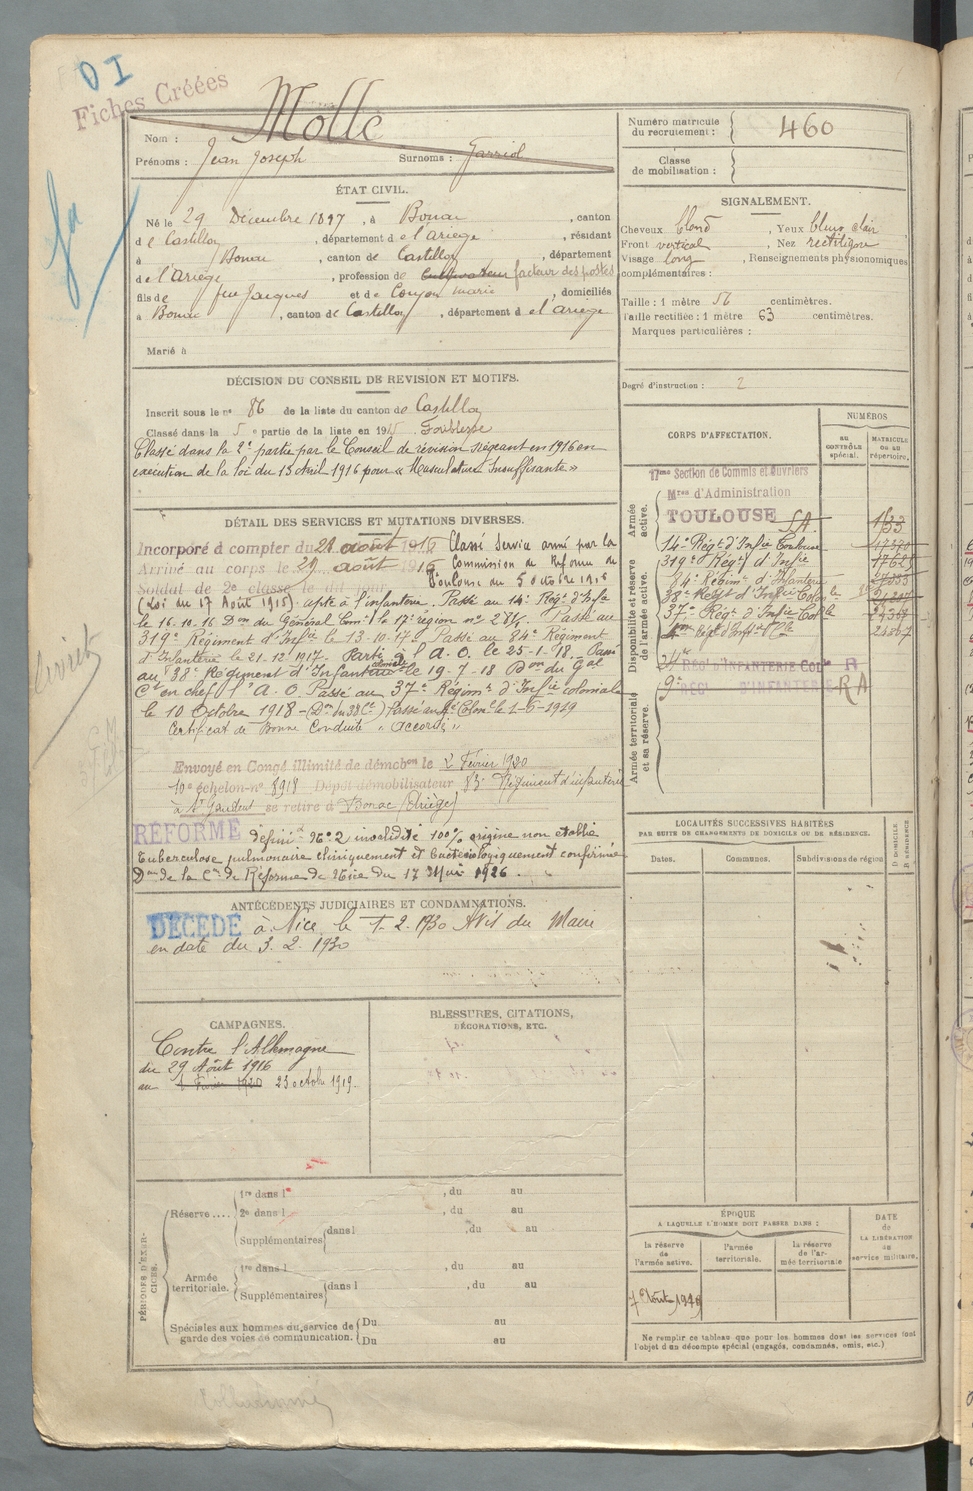 D I
Fiches Créées
Nom : Molle
Prénoms : Jean Joseph Surnoms : Garriol
Numéro matricule du recrutement : 460
Classe de mobilisation :
ÉTAT CIVIL.
Né le 29 Décembre 1897, à Bonac, canton
de Castillon, département de l'Ariège, résidant
à Bonac, canton de Castillon, département
de l'Ariège, profession de cultivateur facteur des postes
fils de feu Jacques et de Marie, domiciliés
à Bonac, canton de Castillon, département de l'Ariège
Marié à
SIGNALEMENT.
Cheveux blond, Yeux bleus clair
Front vertical, Nez rectiligne
Visage long, Renseignements physionomiques
complémentaires :
Taille : 1 mètre 56 centimètres.
Taille rectifiée : 1 mètre 63 centimètres.
Marques particulières :
Degré d'instruction : 2
DÉCISION DU CONSEIL DE REVISION ET MOTIFS.
Inscrit sous le n° 86 de la liste du canton de Castillon
Classé dans la 5e partie de la liste en 1915. Faiblesse
Classé dans la 2e partie par le Conseil de révision siégeant en 1916 en
exécution de la loi du 15 Avril 1916 pour « Musculature Insuffisante »
DÉTAIL DES SERVICES ET MUTATIONS DIVERSES.
Incorporé à compter du 29 août 1916 Classé Service armé par la
Arrivé au corps le 29 août 1916 Commission de réforme de
Soldat de 2e classe le dit jour Toulouse du 5 octobre 1916
(Loi du 17 Août 1915) apte à l'infanterie. Passé au 14e Régt d'Infie
le 16.10.16 Don du Général Comt la 17e région no 284. Passé au
319e Régiment d'Infie le 13-10-17. Passé au 84e Régiment
d'Infanterie le 21.12.1917. Parti à l'A.O. le 25-1-18. Passé
au 38e Régiment d'Infanterie coloniale le 19-7-18 Don du Gal
Ct en chef l'A.O. Passé au 37e Régimt d'Infie coloniale
le 10 Octobre 1918 - (Don du 38 Cl) Passé au 4e Colonl le 1-6-1919
Certificat de Bonne Conduite " Accordé "
Envoyé en Congé illimité de démobon le 2 Février 1920
10e échelon-no 8918 Dépôt démobilisateur 83e Régiment d'infanterie
à St Gaudens se retire à Bonac (Ariège)
RÉFORMÉ Définif No 2 invalidité 100% origine non établie
Tuberculose pulmonaire cliniquement et bactériologiquement confirmée
Don de la Con de Réforme de Nice du 17 Mai 1926.
ANTÉCÉDENTS JUDICIAIRES ET CONDAMNATIONS.
DÉCÉDÉ à Nice le 1-2-1930 Avis du Maire
en date du 3.2.1930
CAMPAGNES.
Contre l'Allemagne
du 29 Août 1916
au 2 Février 1920 23 octobre 1919.
BLESSURES, CITATIONS,
DÉCORATIONS, ETC.
PÉRIODES D'EXERCICES.
Réserve ....
1re dans l , du au
2e dans l , du au
Supplémentaires dans l , du au
Armée territoriale.
1re dans l , du au
Supplémentaires dans l , du au
Spéciales aux hommes du service de garde des voies de communication.
Du au
Du au
CORPS D'AFFECTATION.
NUMÉROS
AU CONTRÔLE spécial.
MATRICULE OU AU répertoire.
Armée active.
Disponibilité et réserve de l'armée active.
Armée territoriale et sa réserve.
17me Section de Commis et Ouvriers
Mres d'Administration
TOULOUSE SA.
14e Régt d'Infie Toulouse
319e Régt d'Infie
84e Régimt d'Infanterie
38e Régt d'Infie Colole
37e Régt d'Infie Colle
RÉGt D'INFANTERIE Colle R
9e RÉGt D'INFANTERIE RA
LOCALITÉS SUCCESSIVES HABITÉES
PAR SUITE DE CHANGEMENTS DE DOMICILE OU DE RÉSIDENCE.
Dates.
Communes.
Subdivisions de région
D DOMICILE
R RÉSIDENCE
ÉPOQUE
A LAQUELLE L'HOMME DOIT PASSER DANS :
la réserve de l'armée active.
l'armée territoriale.
la réserve de l'armée territoriale
DATE de LA LIBÉRATION du service militaire.
Ne remplir ce tableau que pour les hommes dont les services font
l'objet d'un décompte spécial (engagés, condamnés, omis, etc.)